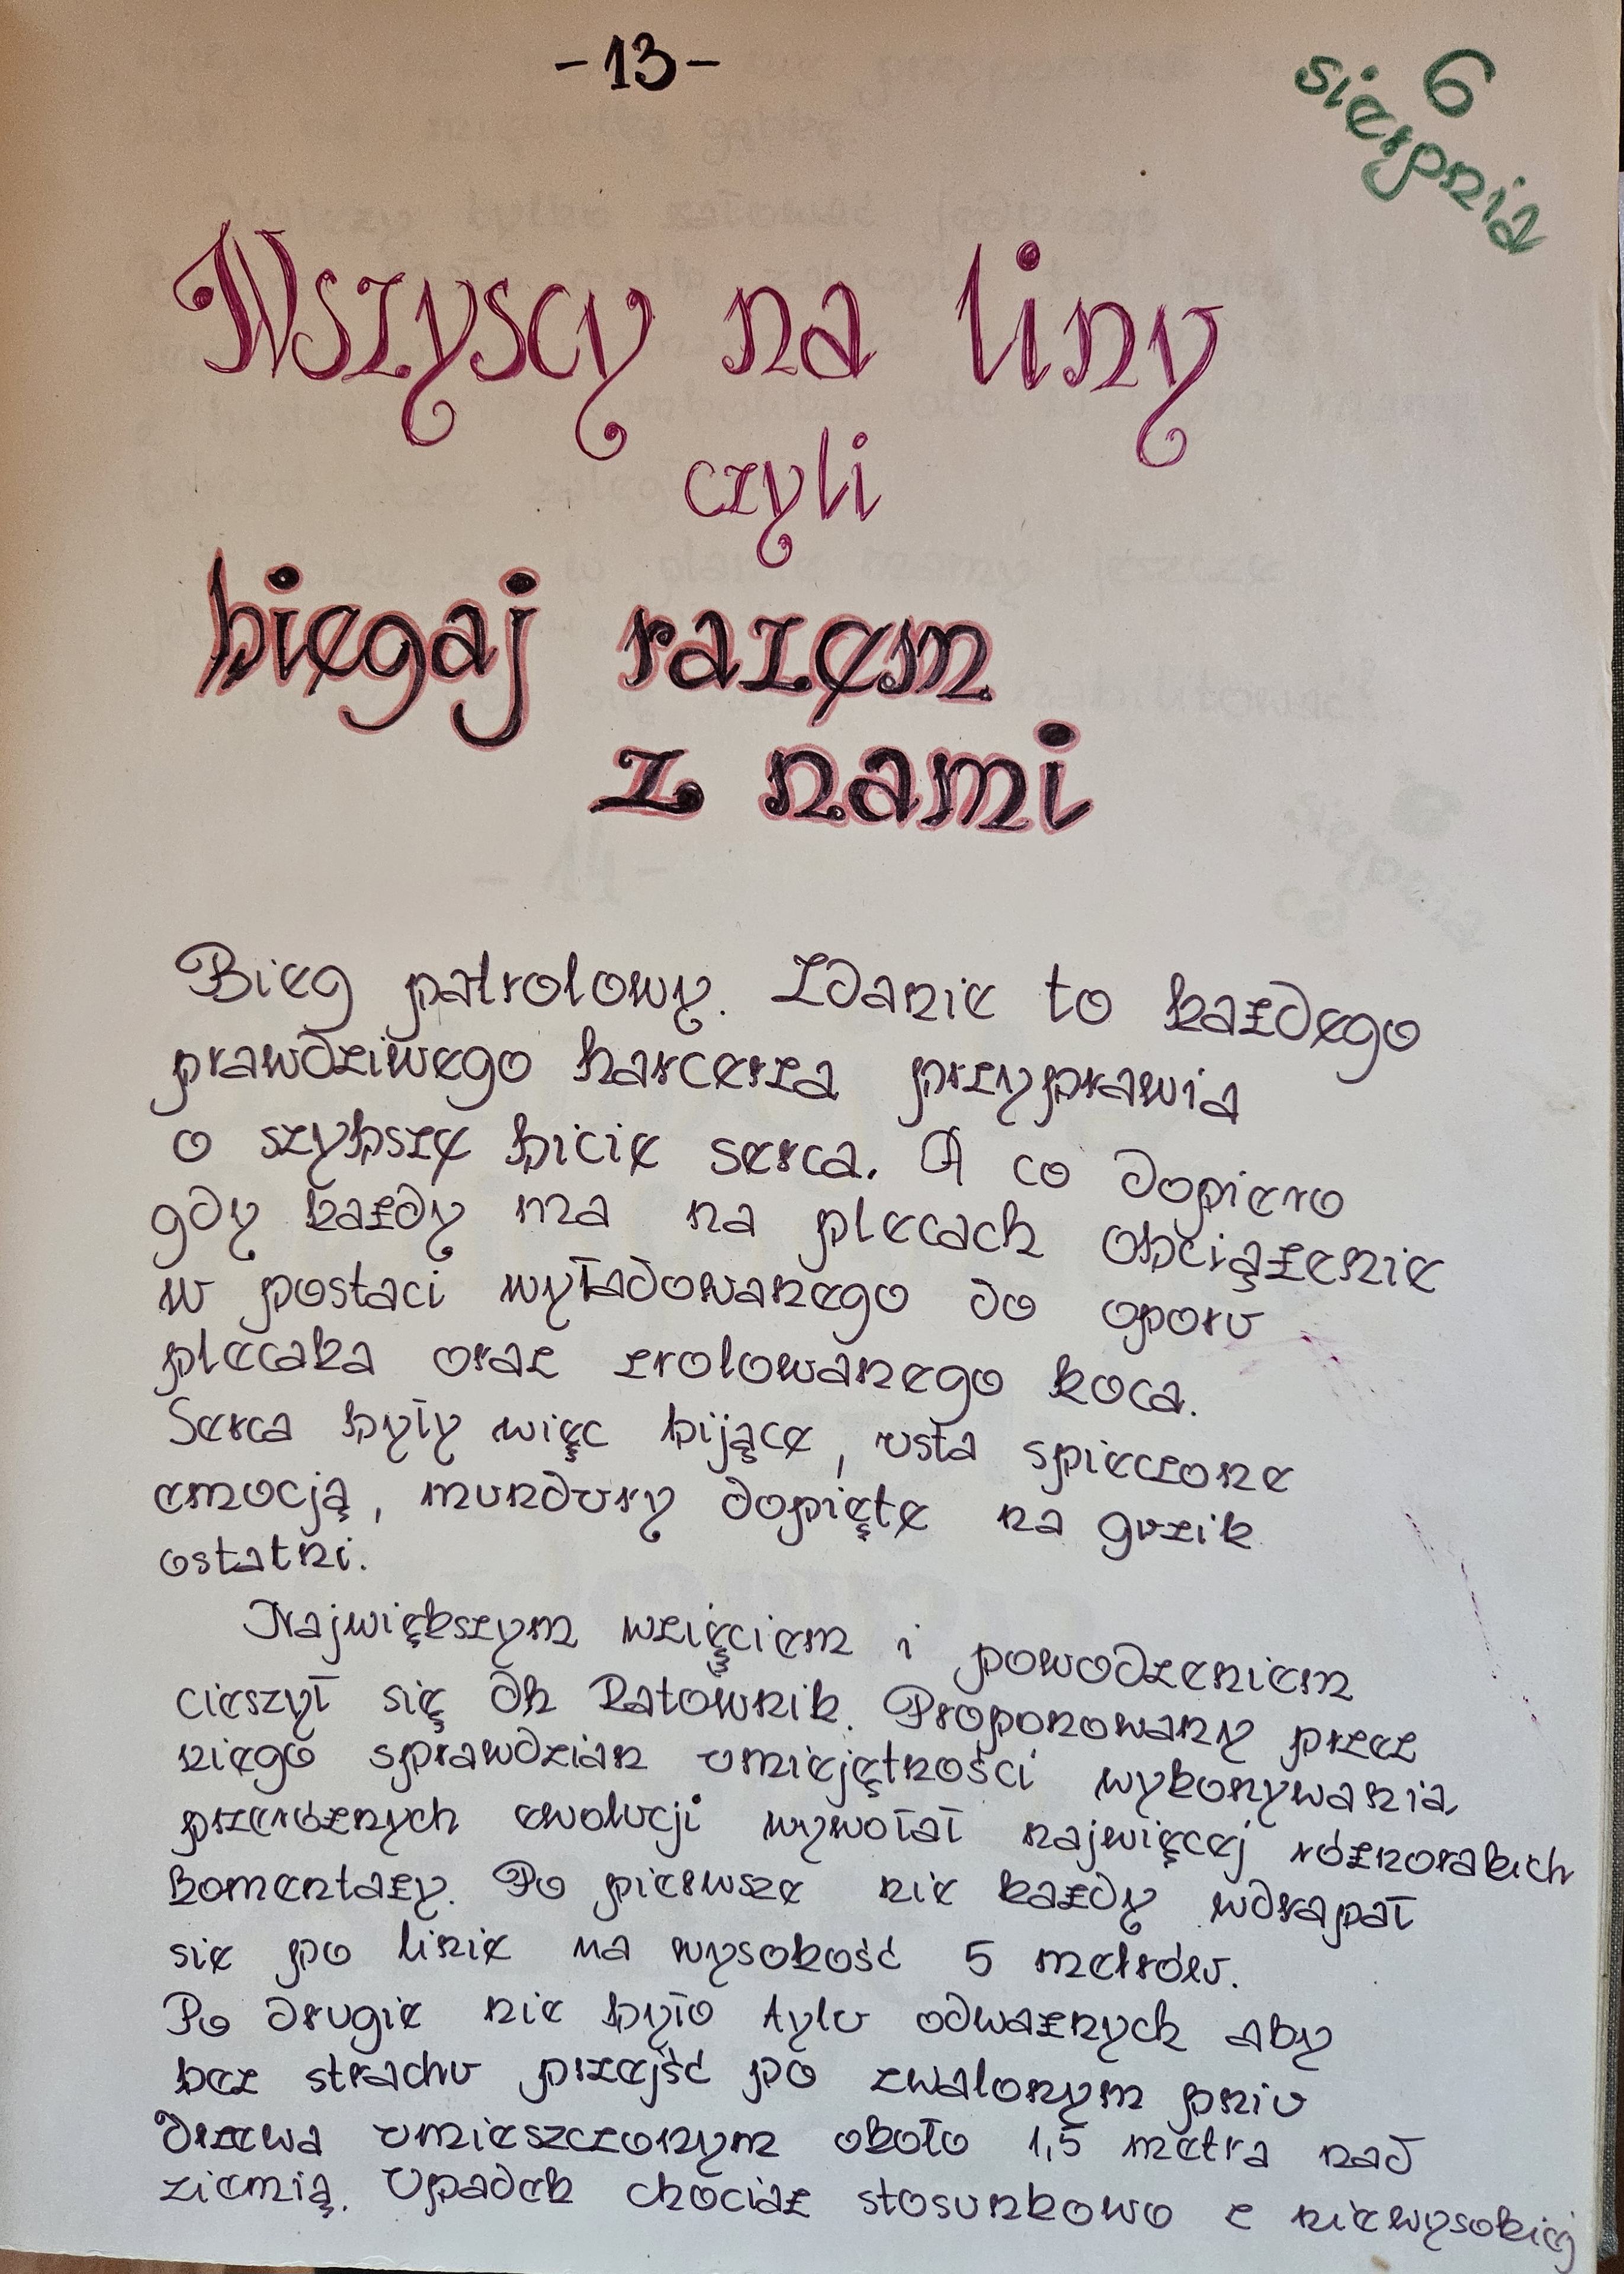 -13-
6
sierpnia
Wszyscy na liny
czyli
biegaj razem
z nami
Bieg patrolowy. Zdanie to każdego
prawdziwego harcerza przyprawia
o szybsze bicie serca. A co dopiero
gdy każdy ma na plecach obciążenie
w postaci wyładowanego do oporu
plecaka oraz zrolowanego koca.
Serca były więc bijące, usta spieczone
emocją, mundury dopięte na guzik
ostatni.
Największym wzięciem i powodzeniem
cieszył się dh Ratownik. Proponowany przez
niego sprawdzian umiejętności wykonywania
przeróżnych ewolucji wywołał najwięcej różnorakich
komentaży. Po pierwsze nie każdy wdrapał
sie po linie na wysokość 5 metrów.
Po drugie nie było tylu odważnych aby
bez strachu przejść po zwalonym pniu
drzewa umieszczonym około 1,5 metra nad
ziemią. Upadek chociaż stosunkowo z niewysokiej